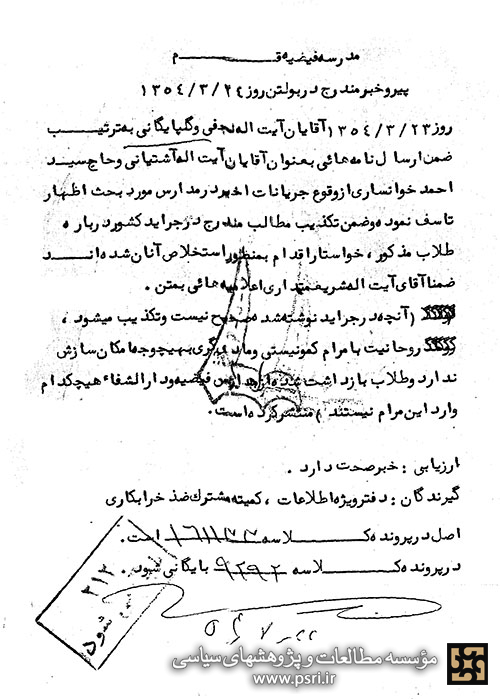 مدرسه فیضیه قم
پیرو خبر مندرج در بولتن روز ۱۳۵۴/۳/۲۴
روز ۱۳۵۴/۳/۲۳ آقایان آیت اله نجفی و گلپایگانی به ترتیب
ضمن ارسال نامه هائی بعنوان آقایان آیت اله آشتیانی و حاج سید
احمد خوانساری از وقوع جریانات اخیر در مدارس مورد بحث اظهار
تاسف نموده و ضمن تکذیب مطالب مندرج در جراید کشور درباره
طلاب مذکور، خواستار اقدام بمنظور استخلاص آنان شده اند
ضمنا آقای آیت اله شریعتمداری اعلامیه هائی بمتن.
(آنچه در جراید نوشته شده صحیح نیست و تکذیب میشود،
روحانیت با مرام کمونیستی و مادیگری بهیچوجه امکان سازش
ندارد و طلاب بازداشت شده از مدارس فیضیه و دارالشفاء هیچکدام
وارد این مرام نیستند) منتشر کرده است.
ارزیابی: خبر صحت دارد.
گیرندگان: دفتر ویژه اطلاعات، کمیته مشترک ضد خرابکاری
اصل در پرونده کلاسه است.
در پرونده کلاسه ۹۲۹۲ بایگانی شود.
۲۱۲
شود
مؤسسه مطالعات و پژوهشهای سیاسی
www.psri.ir